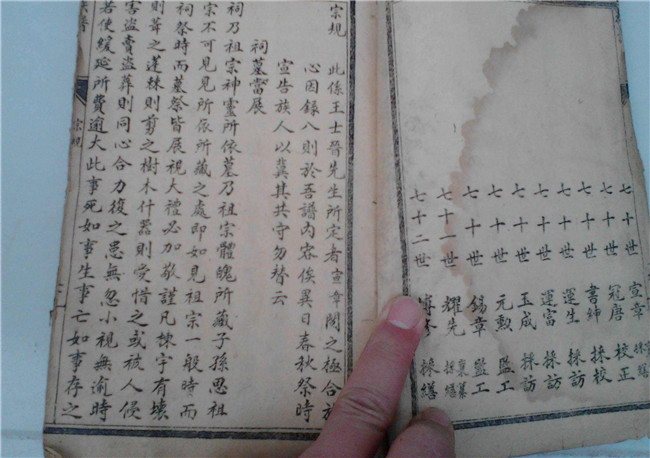 七十世 宣章
七十世 冠唐 校正
七十世 書紳 採校
七十世 運生 採訪
七十世 運富 採訪
七十世 玉成 採訪
七十世 元勳 監工
七十世 錫章 監工
七十一世 耀先 採繕
七十二世 採繕
宗規 此係王士晉先生所定者宣章閱之極合
心因錄八則於吾譜內容俟異日春秋祭時
宣告族人以冀其共守勿替云
祠墓當展
祠乃祖宗神靈所依墓乃祖宗體魄所藏子孫思祖
宗不可見見所依所藏之處即如見祖宗一般時而
祠祭時而墓祭皆展視大禮必加敬謹凡棟宇有壞
則葺之蓬棘則剪之樹木什器則愛惜之或被人侵
害盜賣盜葬則同心合力復之患無忽小視無逾時
若使緩延所費逾大此事死如事生事亡如事存之